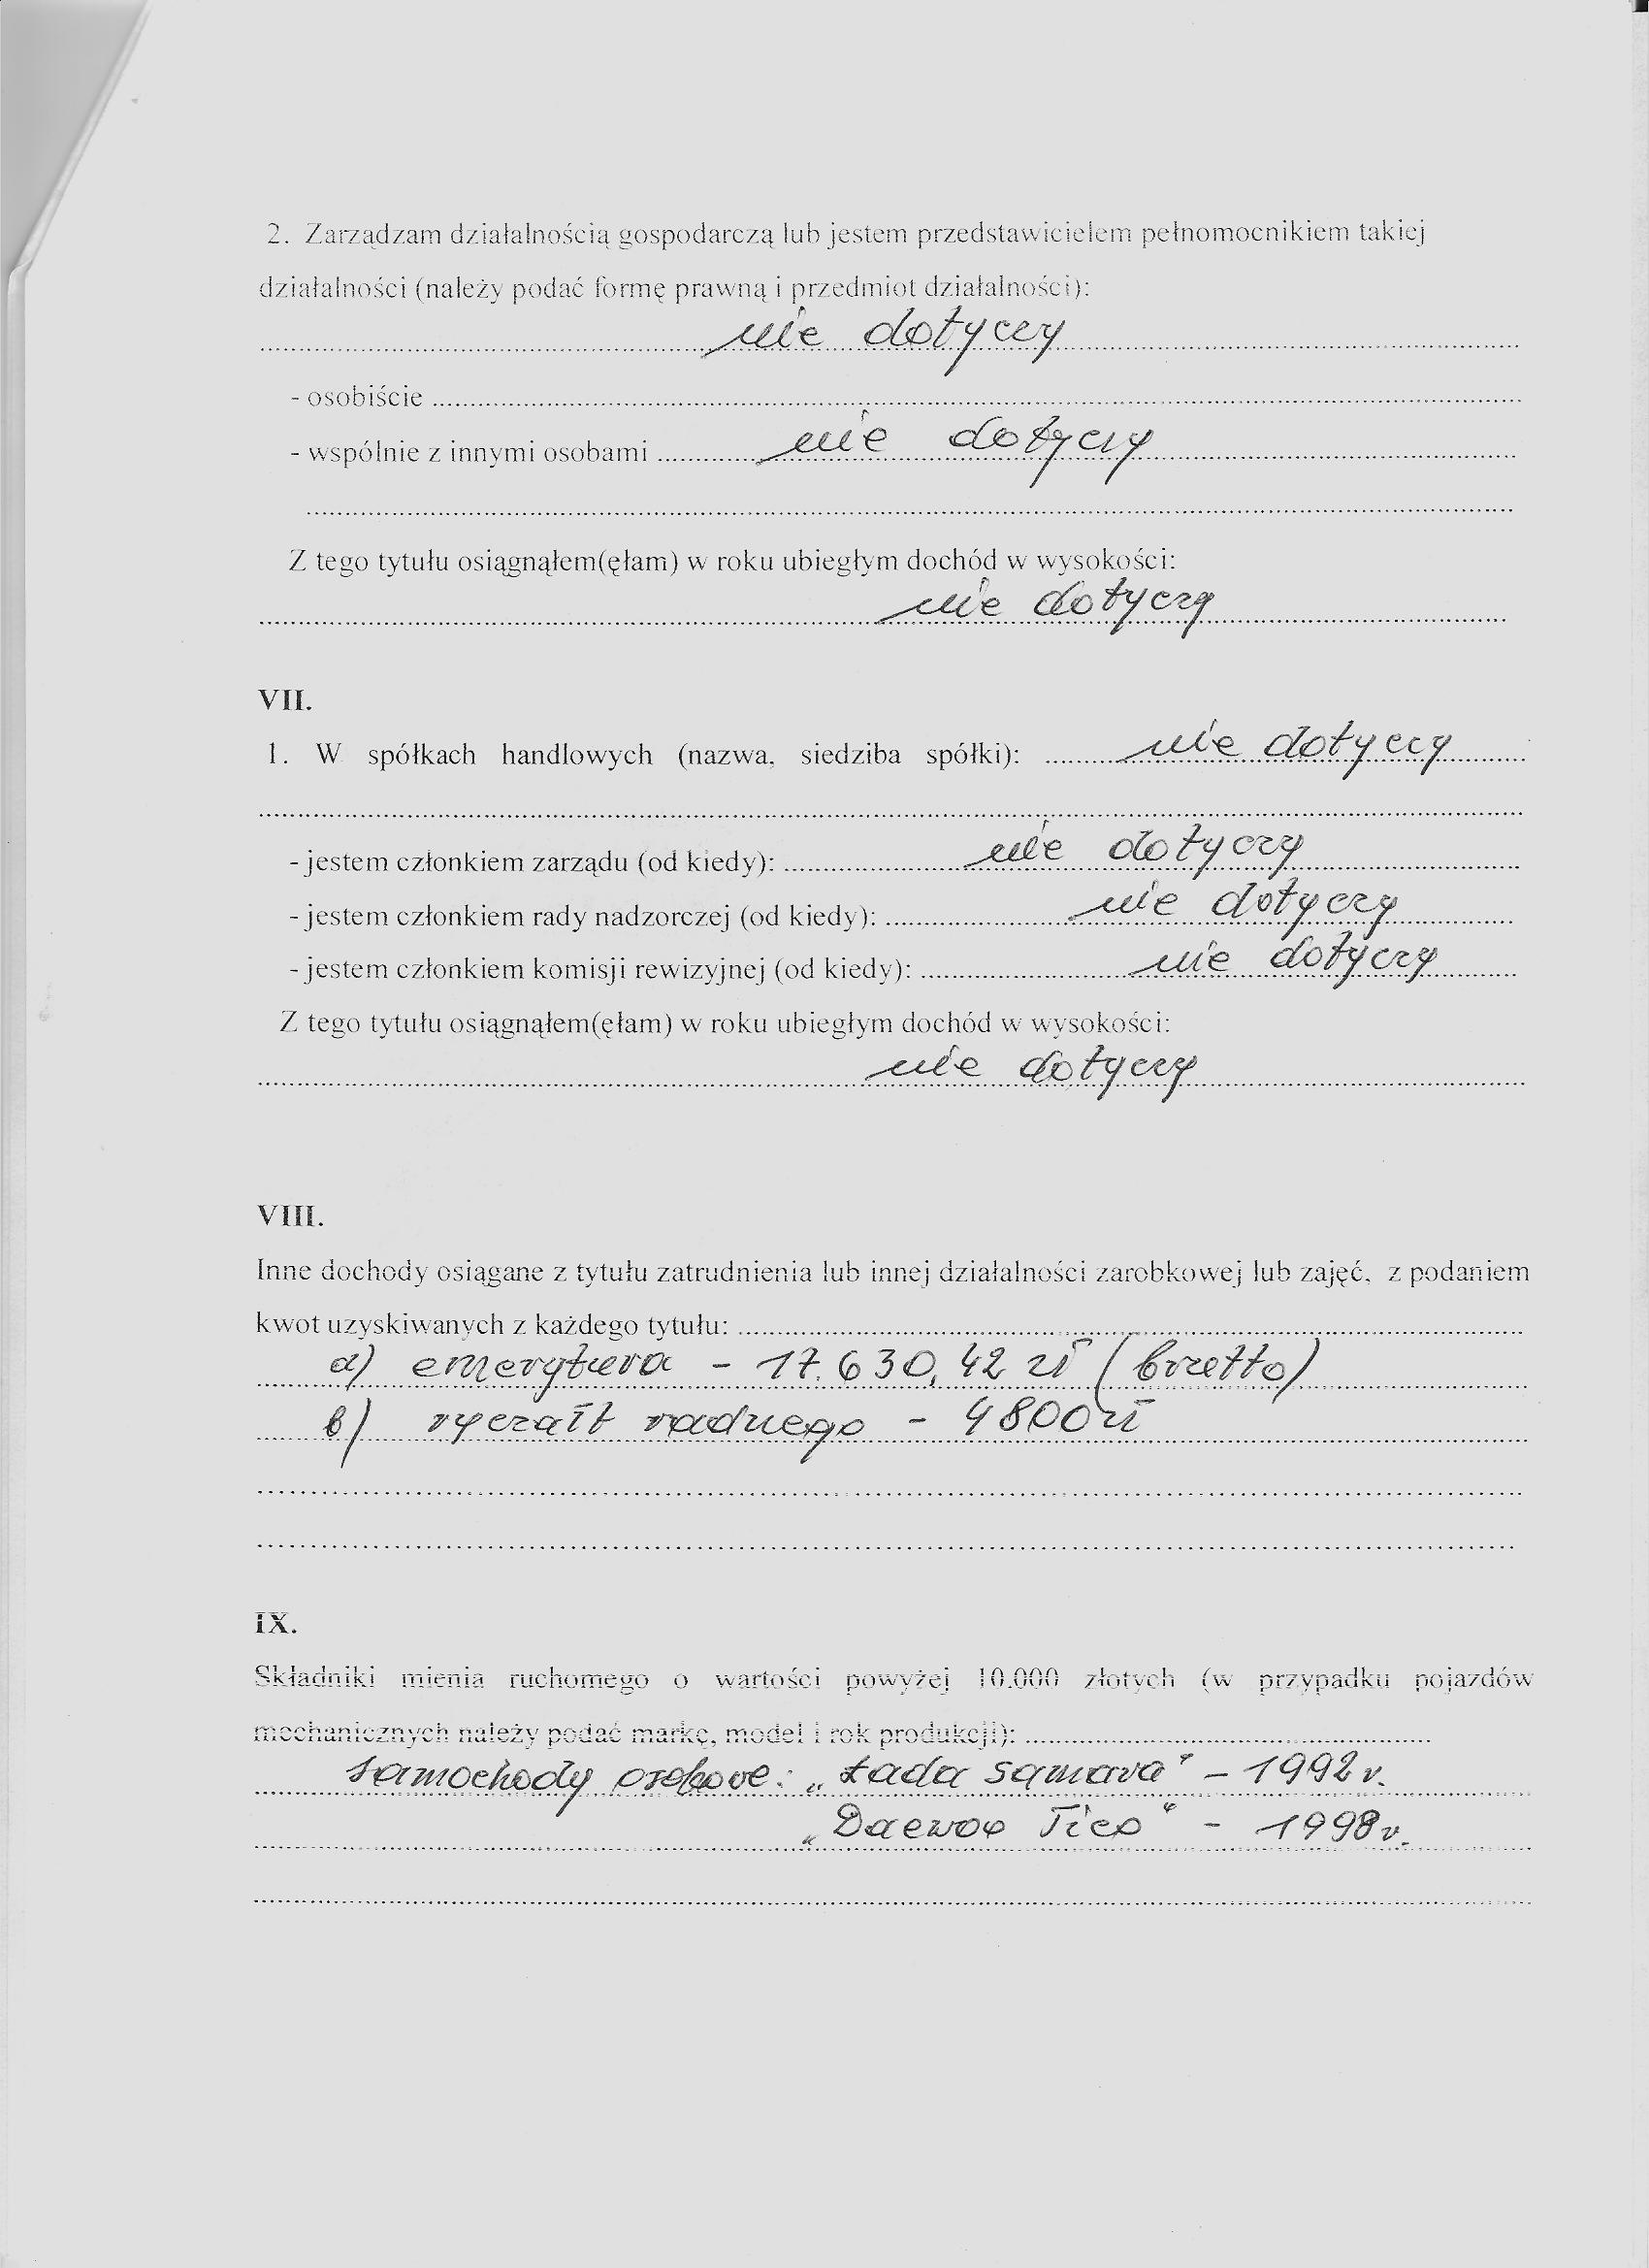 2. Zarządzam działalnością gospodarczą lub jestem przedstawicielem pełnomocnikiem takiej
działalności (należy podać formę prawną i przedmiot działalności):
nie dotyczy
- osobiście
- wspólnie z innymi osobami nie dotyczy
Z tego tytułu osiągnąłem(ęłam) w roku ubiegłym dochód w wysokości:
nie dotyczy
VII.
1. W spółkach handlowych (nazwa, siedziba spółki): nie dotyczy
- jestem członkiem zarządu (od kiedy): nie dotyczy
- jestem członkiem rady nadzorczej (od kiedy): nie dotyczy
- jestem członkiem komisji rewizyjnej (od kiedy): nie dotyczy
Z tego tytułu osiągnąłem(ęłam) w roku ubiegłym dochód w wysokości:
nie dotyczy
VIII.
Inne dochody osiągane z tytułu zatrudnienia lub innej działalności zarobkowej lub zajęć, z podaniem
kwot uzyskiwanych z każdego tytułu:
a) emerytura - 17.630,42 zł (brutto)
b) ryczałt radnego - 4800 zł
IX.
Składniki mienia ruchomego o wartości powyżej 10.000 złotych (w przypadku pojazdów
mechanicznych należy podać markę, model i rok produkcji):
samochody osobowe: „Łada samara" - 1992 r.
„Daewoo Tico" - 1998 r.